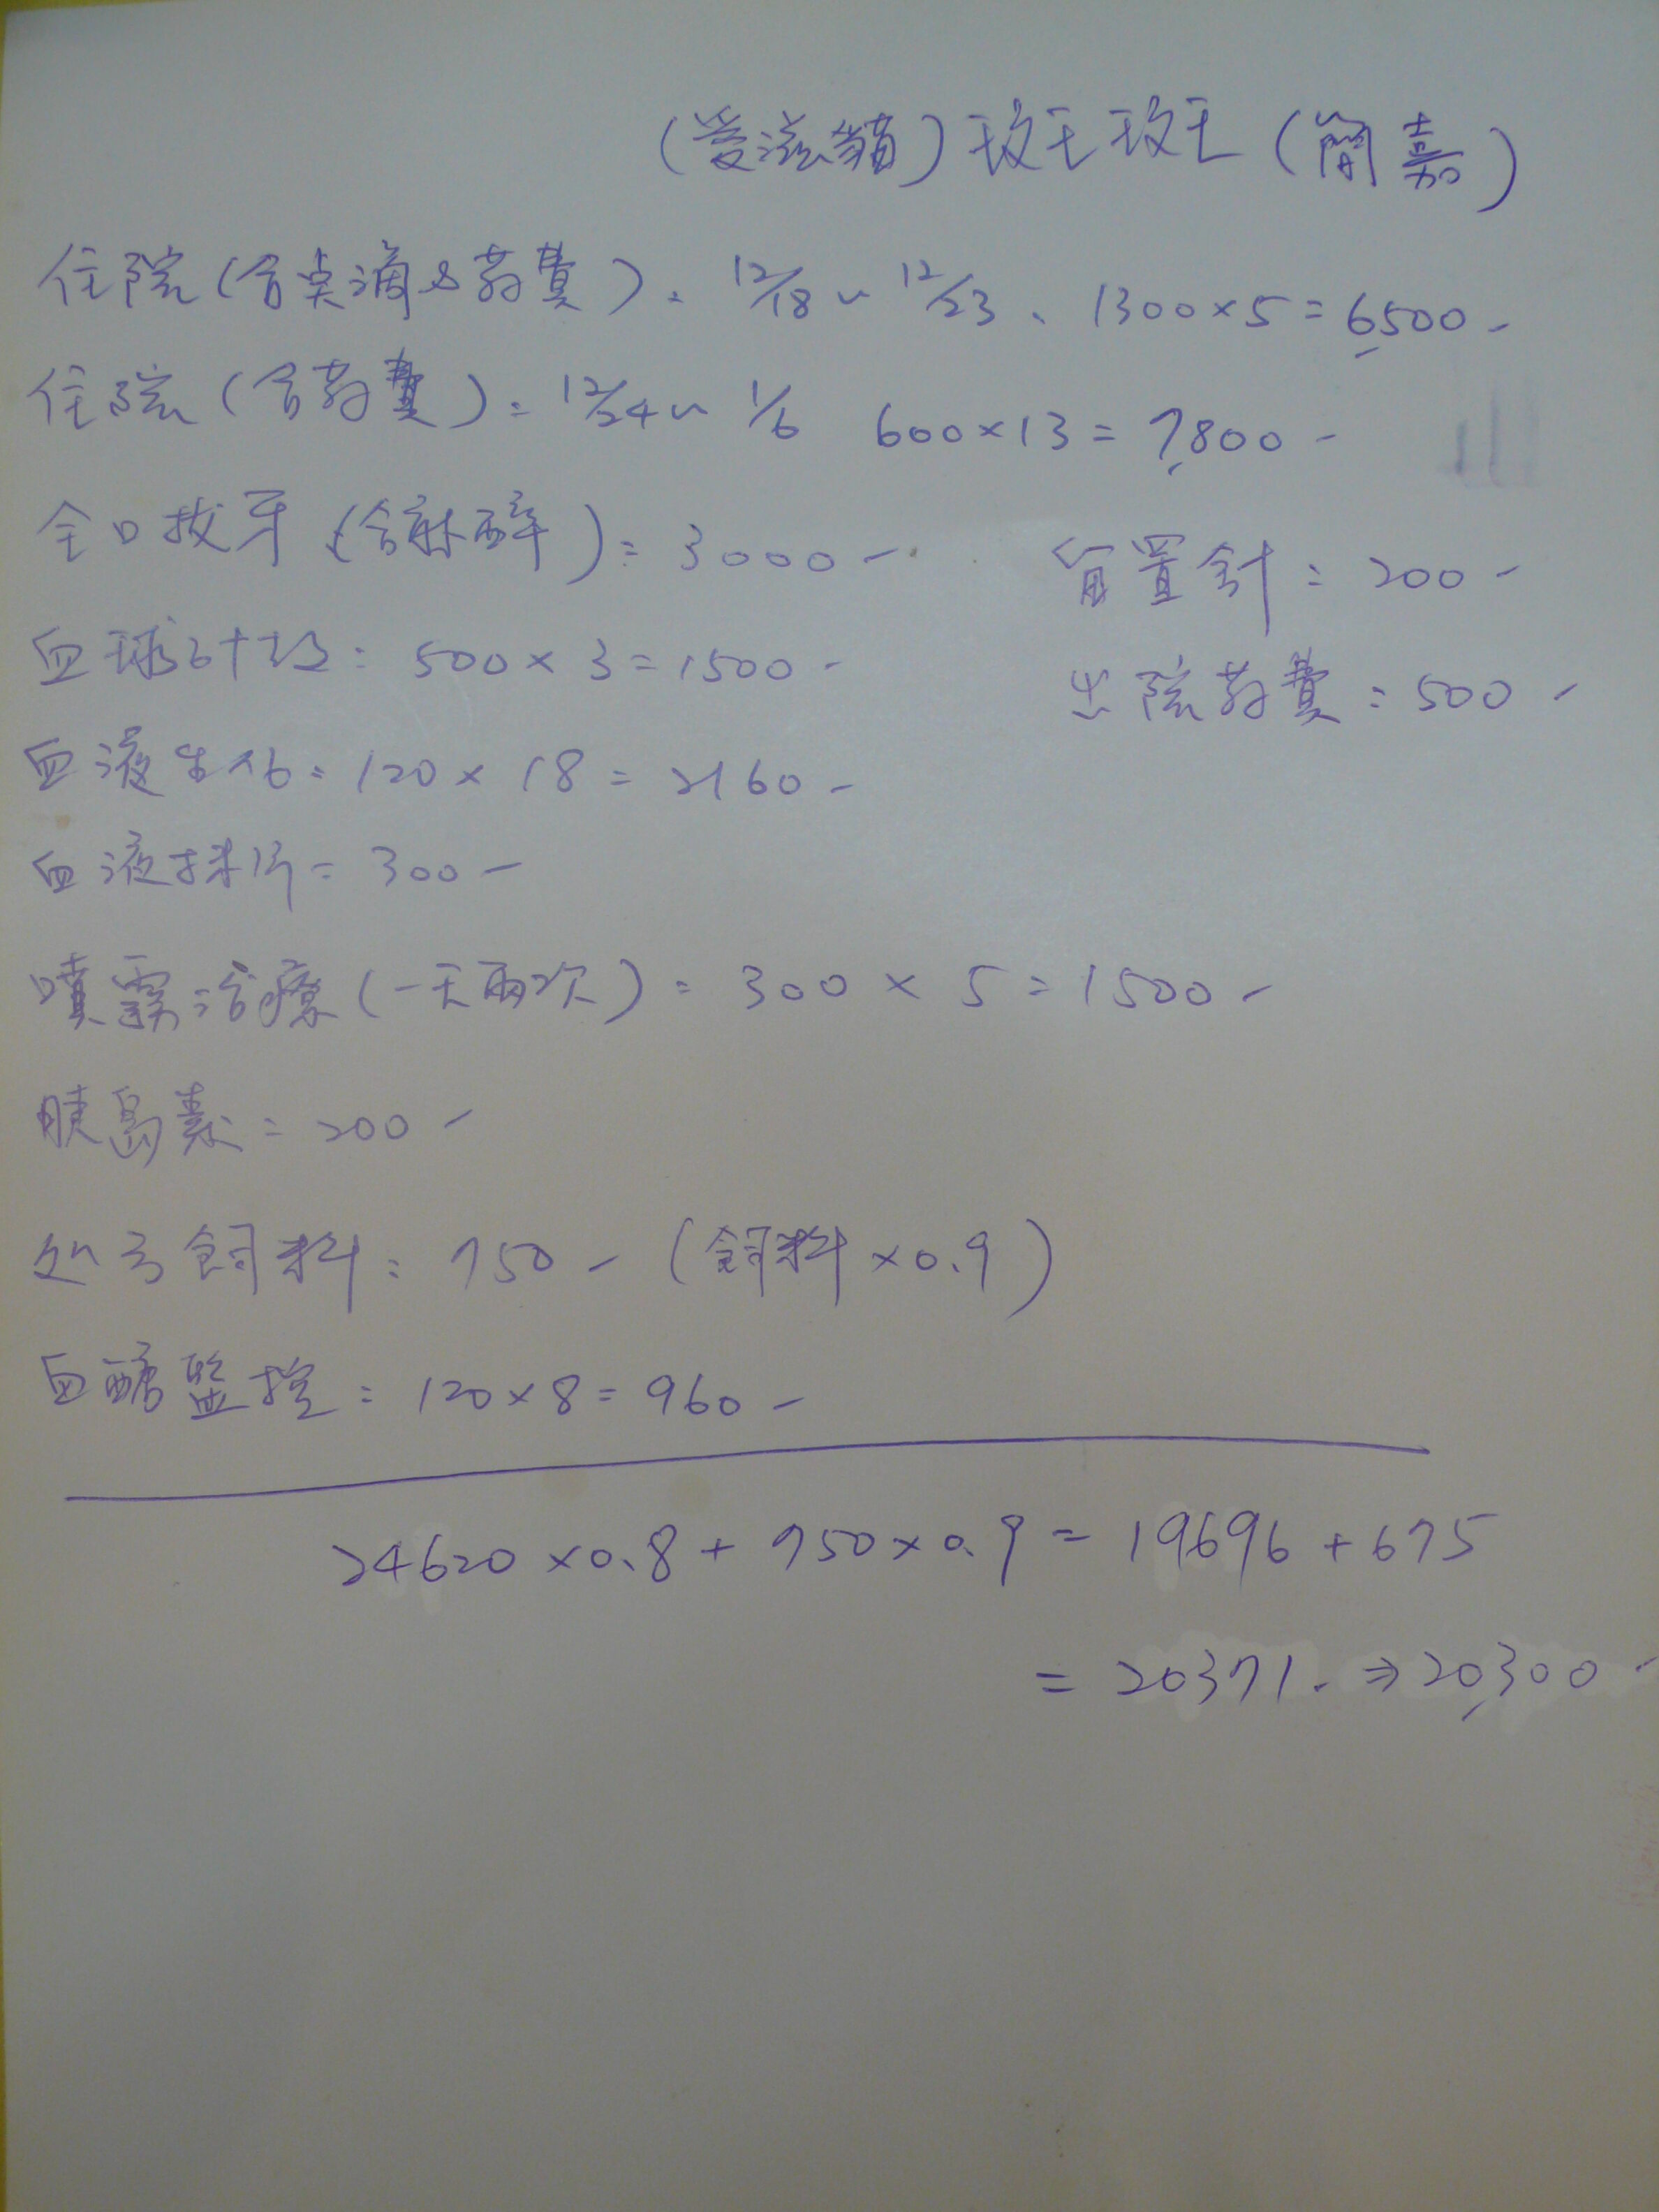 (愛滋貓) 斑斑 (簡嘉)
住院(含点滴&葯費): 12/18~12/23、1300×5=6,500-
住院(含葯費): 12/24~1/6 600×13=7,800-
全口拔牙(含麻醉): 3000-
留置針: 200-
血球計数: 500×3=1500-
出院葯費: 500-
血液生化: 120×18=2160-
血液抹片: 300-
噴霧治療(一天兩次): 300×5=1500-
胰島素: 200-
处方飼料: 750-(飼料×0.9)
血糖監控: 120×8=960-
24620×0.8+750×0.9=19696+675
=20371.⇒20,300-